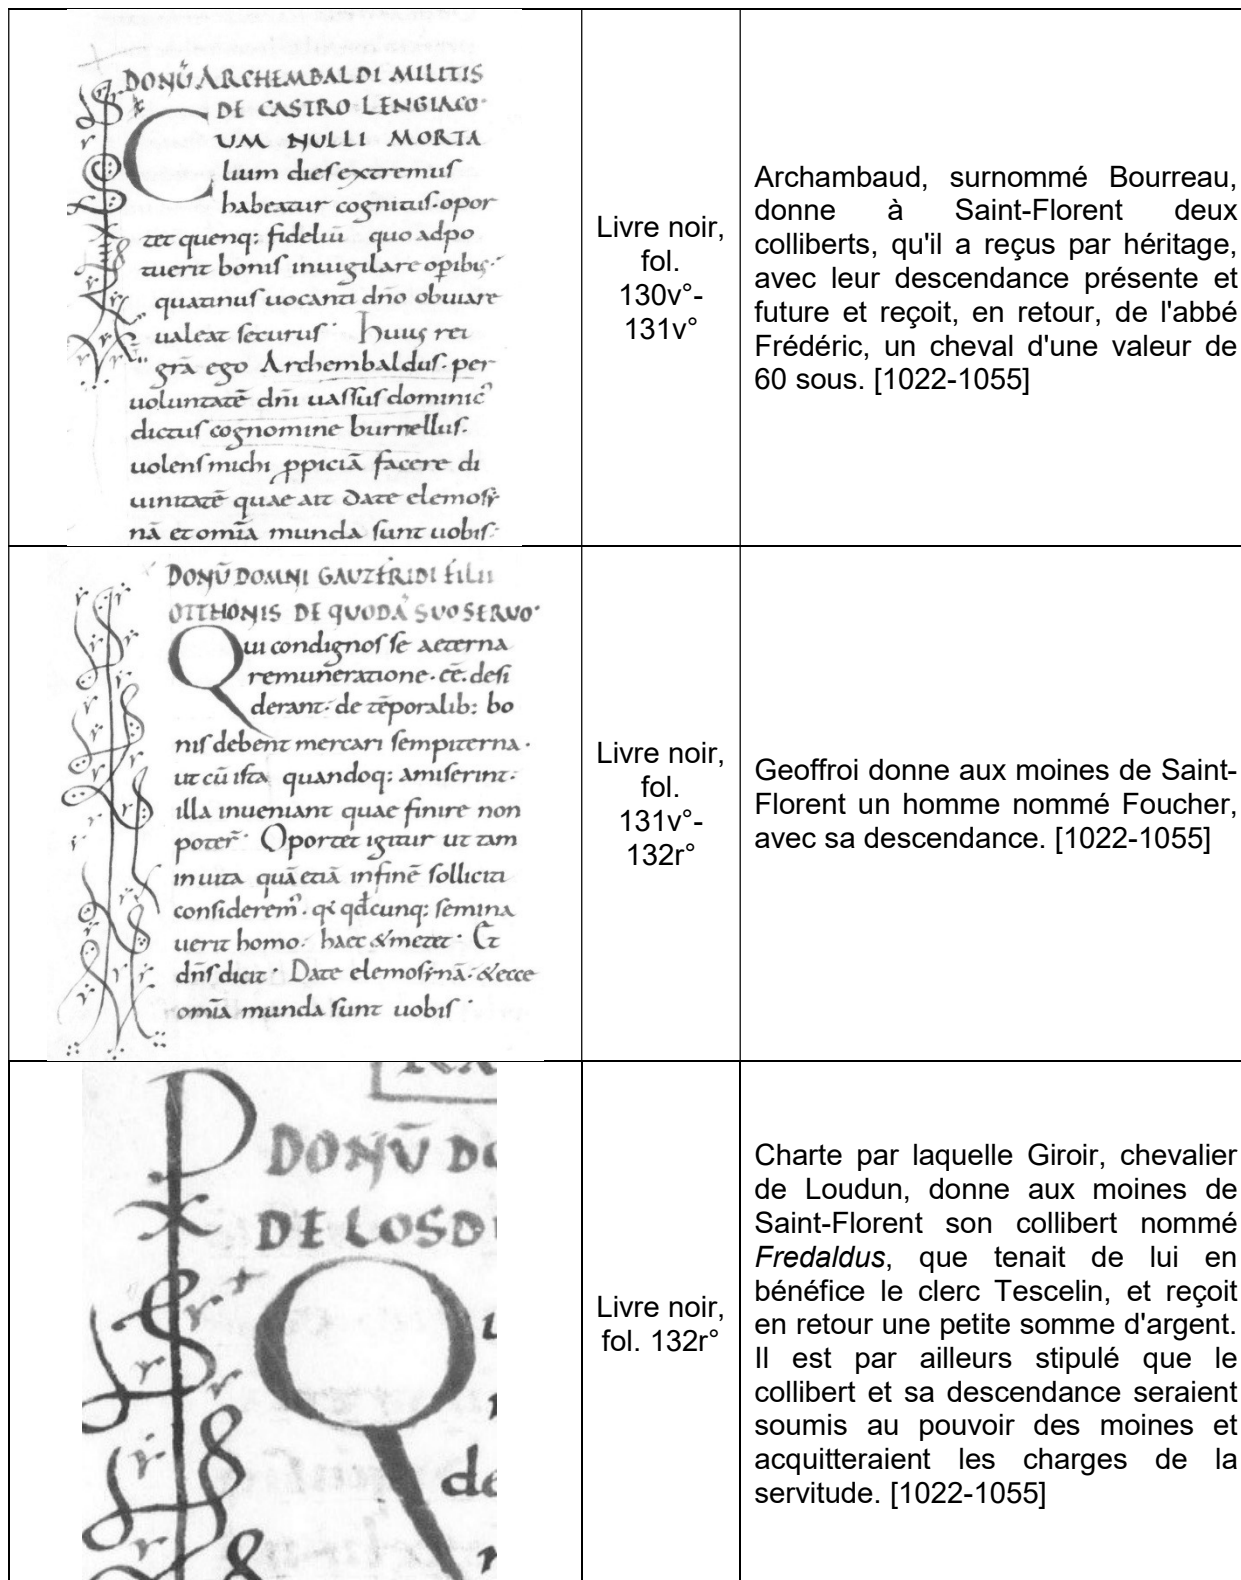 DONŪ ARCHEMBALDI MILITIS
DE CASTRO LENGIACO·
CUM NULLI MORTA
lium dies extremus
habeatur cognitus· opor
tet quenq: fideliū quo adpo
tuerit bonis inuigilare opibus·
quatinus uocanti dño obuiare
ualeat securus· huius rei
grā ego Archembaldus· per
uoluntatē dñi uassus dominic᾽
dictus cognomine burrellus·
uolens michi ppiciā facere di
uinitatē quae ait Date elemosy
nā et omīa munda sunt uobis·
Livre noir,
fol.
130v°-
131v°
Archambaud, surnommé Bourreau,
donne à Saint-Florent deux
colliberts, qu'il a reçus par héritage,
avec leur descendance présente et
future et reçoit, en retour, de l'abbé
Frédéric, un cheval d'une valeur de
60 sous. [1022-1055]
DONŪ DOMNI GAUZFRIDI FILII
OTTHONIS DE QUODĀ SUO SERUO·
Qui condignos se aeterna
remuneratione· cē· desi
derant· de tēporalib: bo
nis debent mercari sempiterna·
ut cū ista quandoq: amiserint·
illa inueniant quae finire non
poter̄· Oportet igitur ut tam
in uita quā etiā in finē solliciti
considerem᾽· qđcunq: semina
uerit homo· haec & metet· Et
dñs dicit· Date elemosynā· & ecce
omīa munda sunt uobis·
Livre noir,
fol.
131v°-
132r°
Geoffroi donne aux moines de Saint-
Florent un homme nommé Foucher,
avec sa descendance. [1022-1055]
DONŪ DO
DE LOSD
Q
de
Livre noir,
fol. 132r°
Charte par laquelle Giroir, chevalier
de Loudun, donne aux moines de
Saint-Florent son collibert nommé
Fredaldus, que tenait de lui en
bénéfice le clerc Tescelin, et reçoit
en retour une petite somme d'argent.
Il est par ailleurs stipulé que le
collibert et sa descendance seraient
soumis au pouvoir des moines et
acquitteraient les charges de la
servitude. [1022-1055]